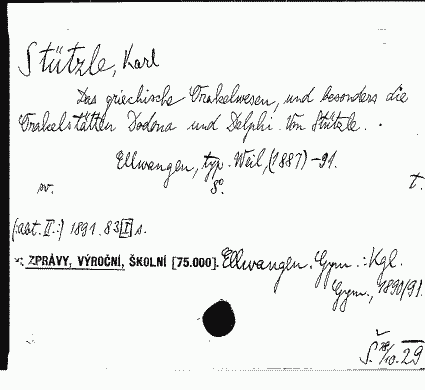 Stützle, Karl
Das griechische Orakelwesen, und besonders die
Orakelstätten Dodona und Delphi. Von Stützle.
Ellwangen, typ. Weil, (1887)-91.
sv. 8° t.
(:abt. II.:) 1891. 83[I] s.
ZPRÁVY, VÝROČNÍ, ŠKOLNÍ [75.000]. Ellwangen. Gym.: Kgl.
Gym., 1890/91.
Š. /10.29